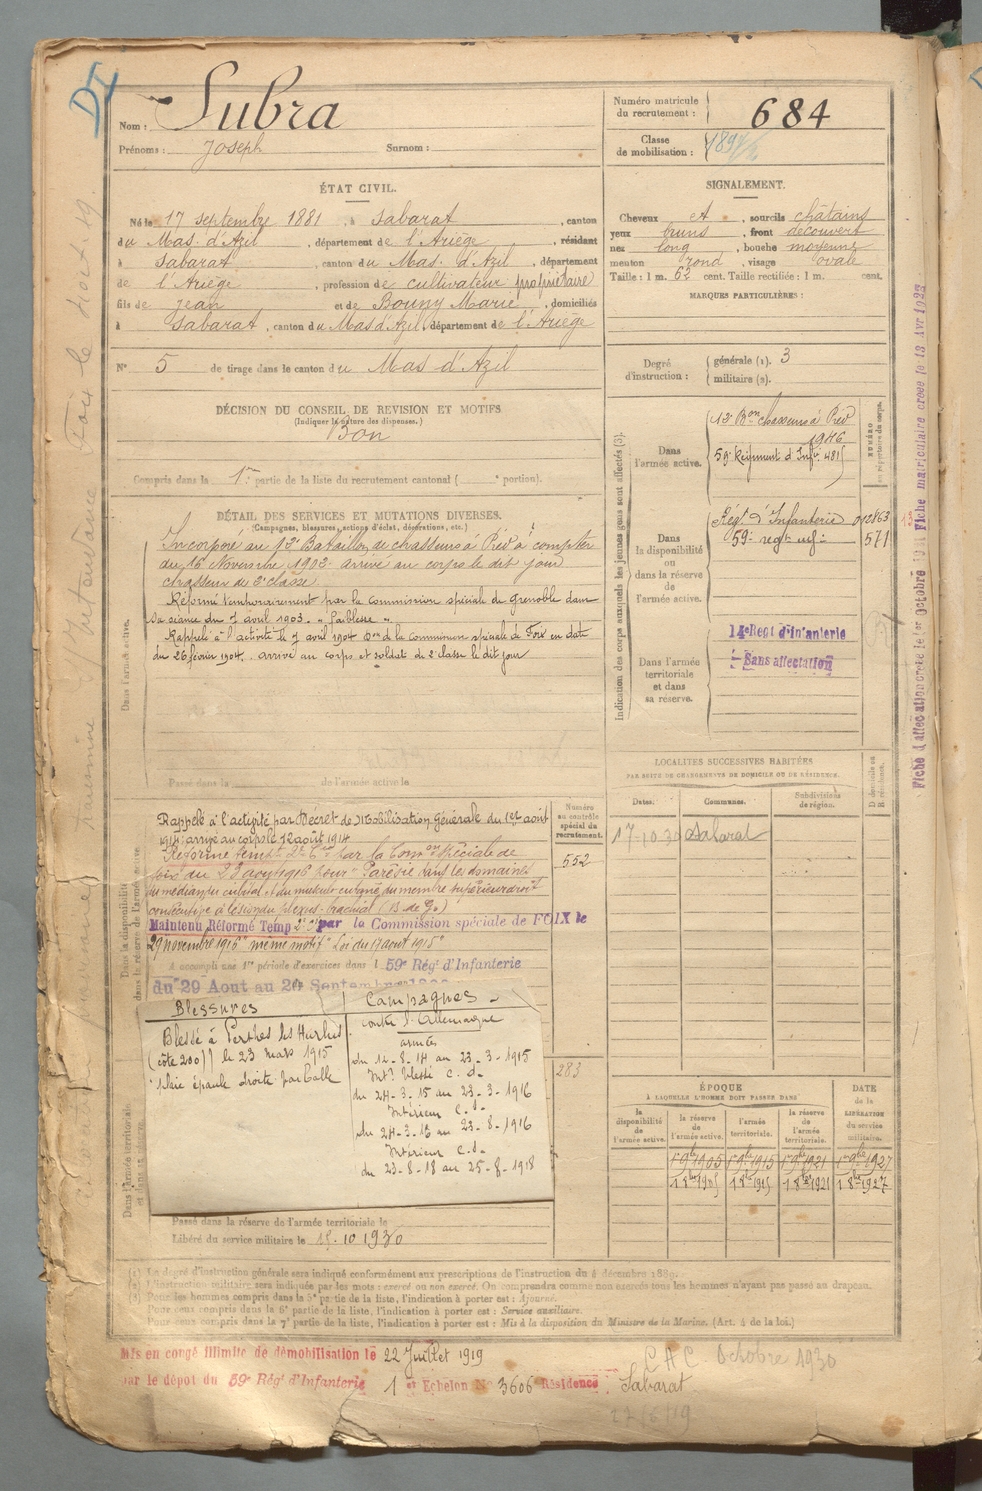 DI
Nom : Subra
Prénoms : Joseph Surnom :
Numéro matricule du recrutement : 684
Classe de mobilisation :
ÉTAT CIVIL.
Né le 17 septembre 1881, à Sabarat, canton
du Mas. d'Azil, département de l'Ariège, résidant
à Sabarat, canton du Mas. d'Azil, département
de l'Ariège, profession de cultivateur propriétaire
fils de Jean et de Bouny Marie, domiciliés
à Sabarat, canton du Mas d'Azil, département de l'Ariège
N° 5 de tirage dans le canton du Mas d'Azil
SIGNALEMENT.
Cheveux et, sourcils châtains
yeux bruns, front découvert
nez long, bouche moyenne
menton rond, visage ovale
Taille : 1 m. 62 cent. Taille rectifiée : 1 m. cent.
MARQUES PARTICULIÈRES :
Degré d'instruction : générale (1). 3
militaire (2).
DÉCISION DU CONSEIL DE REVISION ET MOTIFS
(Indiquer la nature des dispenses.)
Bon
Compris dans la 1re partie de la liste du recrutement cantonal ( e portion).
DÉTAIL DES SERVICES ET MUTATIONS DIVERSES.
(Campagnes, blessures, actions d'éclat, décorations, etc.)
Dans l'armée active.
Incorporé au 13e Bataillon de chasseurs à Pied à compter
du 16 Novembre 1902. arrivé au corps le dit jour
chasseur de 2e classe
Réformé temporairement par la commission spéciale de Grenoble dans
sa séance du 7 avril 1903. "faiblesse"
Rappelé à l'activité le 7 avril 1904 Don de la Commission spéciale de Foix en date
du 26 février 1904. arrivé au corps et soldat de 2e classe le dit jour
Passé dans la de l'armée active le
Indication des corps auxquels les jeunes gens sont affectés (3).
NUMÉRO au répertoire du corps.
Dans l'armée active.
13e Bon chasseurs à Pied
1946
59e Régiment d'Infie 4815
Dans la disponibilité ou dans la réserve de l'armée active.
Régt d'Infanterie 012863
59e regt inf 571
Dans l'armée territoriale et dans sa réserve.
14e Regt d'Infanterie
Sans affectation
LOCALITÉS SUCCESSIVES HABITÉES
PAR SUITE DE CHANGEMENTS DE DOMICILE OU DE RÉSIDENCE.
Dates. Communes. Subdivisions de région. D domicile ou R résidence.
17-10-30 Sabarat
Dans la disponibilité ou dans la réserve de l'armée active.
Numéro au contrôle spécial du recrutement.
552
Rappelé à l'activité par Décret de Mobilisation Générale du 1er août
1914: arrivé au corps le 12 août 1914
Réformé tempre par la Comon spéciale de
Foix du 23 aout 1916 pour "Parésie dans les domaines
du médian, du cubital et du musculo cutané du membre supérieur droit
consécutive à lésion du plexus brachial (B de G.)
Maintenu Réformé Temp 2° par la Commission spéciale de FOIX le
29 novembre 1916 "même motif" Loi du 17 aout 1915"
A accompli une 1re période d'exercices dans l 59e Régt d'Infanterie
du 29 Aout au
Blessures
Blessé à Perthes les Hurlus
(côte 200) le 23 mars 1915
"Plaie épaule droite par balle
Campagnes
contre l'Allemagne
armées
du 12-8-14 au 23-3-1915
Intr blessé C. d.
du 24-3-15 au 23-3-1916
Intérieur C. d.
du 24-3-16 au 23-8-1916
Intérieur C. d.
du 23-8-18 au 25-8-1918
283
Dans l'armée territoriale et dans sa réserve.
ÉPOQUE
À LAQUELLE L'HOMME DOIT PASSER DANS
DATE de la LIBÉRATION du service militaire.
la disponibilité de l'armée active.
la réserve de l'armée active.
l'armée territoriale.
la réserve de l'armée territoriale.
1 9bre 1905 1 9bre 1915 1 9bre 1921 1 9bre 1927
1 8bre 1905 1 8bre 1915 1 8bre 1921 1 8bre 1927
Passé dans la réserve de l'armée territoriale le
Libéré du service militaire le 15. 10 1930
(1) Le degré d'instruction générale sera indiqué conformément aux prescriptions de l'instruction du 4 décembre 1889.
(2) L'instruction militaire sera indiquée par les mots : exercé ou non exercé. On comprendra comme non exercés tous les hommes n'ayant pas passé au drapeau.
(3) Pour les hommes compris dans la 5e partie de la liste, l'indication à porter est : Ajourné.
Pour ceux compris dans la 6e partie de la liste, l'indication à porter est : Service auxiliaire.
Pour ceux compris dans la 7e partie de la liste, l'indication à porter est : Mis à la disposition du Ministre de la Marine. (Art. 4 de la loi.)
Mis en congé illimité de démobilisation le 22 Juillet 1919
par le dépot du 59e Régt d'Infanterie 1 er Echelon N° 3606 Résidence Sabarat
Octobre 1930
Fiche matriculaire créée le 13 Avr 1922